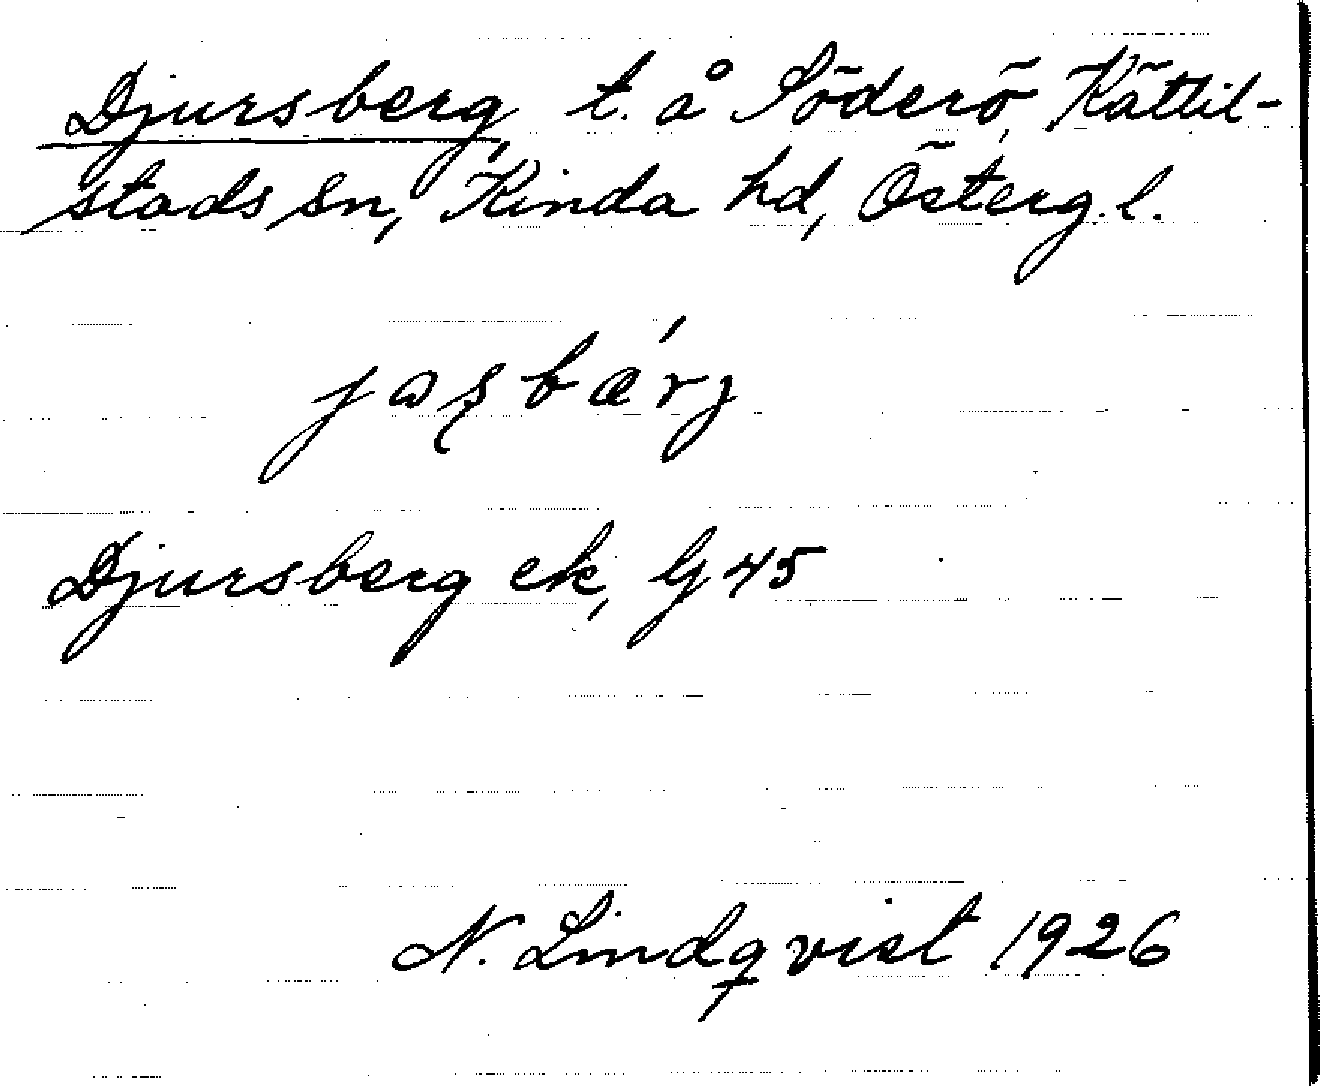 Djursberg, t. å Söderö, Kättil-
stads sn, Kinda hd, Österg. l.
jaʂbærj
Djursberg ek, G 45
N. Lindqvist 1926